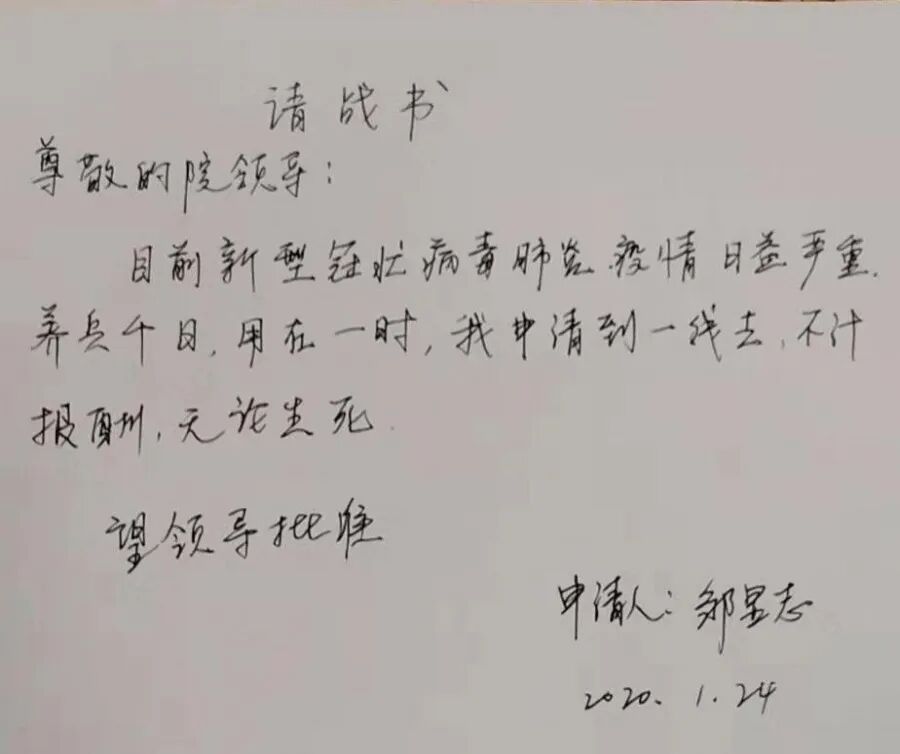 请战书
尊敬的院领导:
目前新型冠状病毒肺炎疫情日益严重.
养兵千日,用在一时,我申请到一线去,不计
报酬,无论生死.
望领导批准
申请人:邹显志
2020.1.24